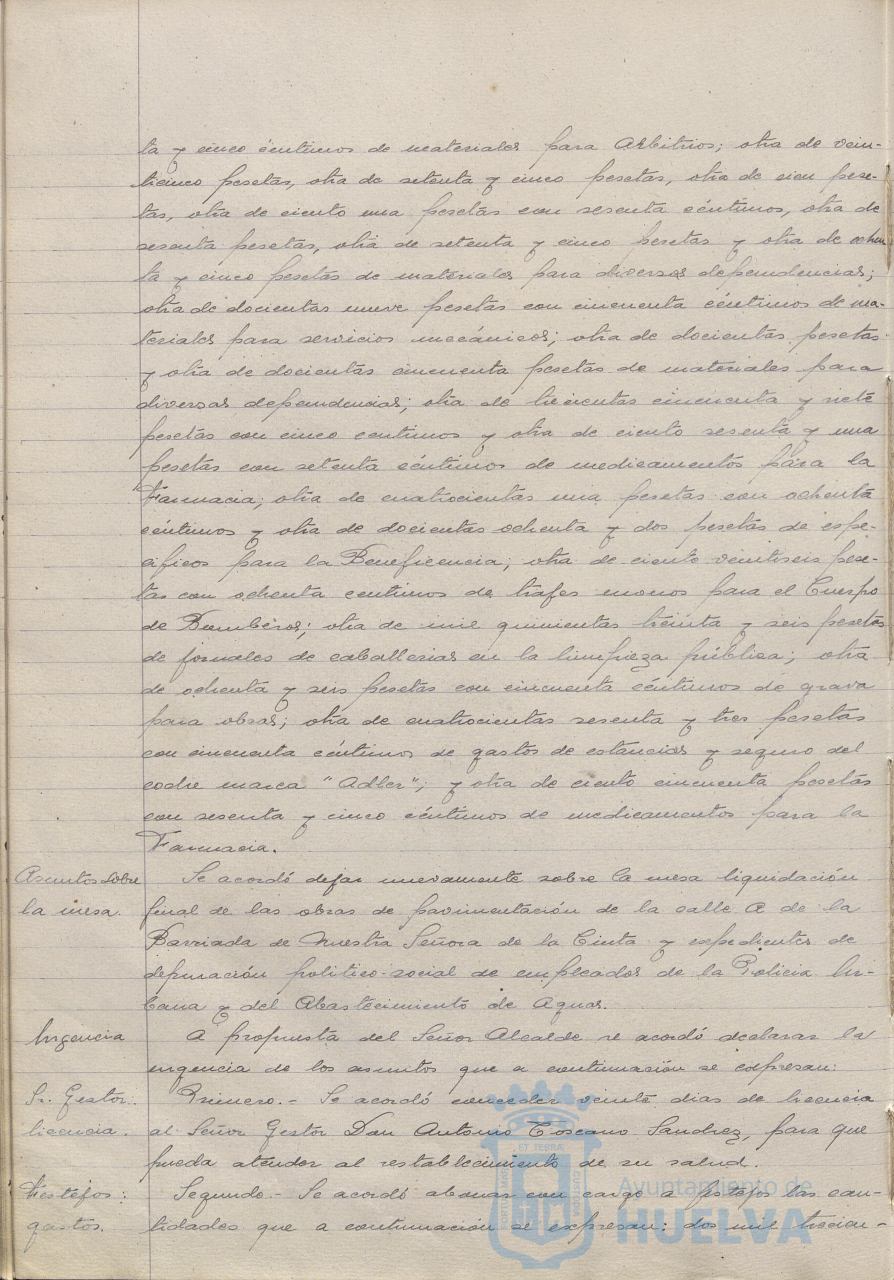 ta y cinco céntimos de materiales para Arbitrios; otra de vein-
ticinco pesetas, otra de setenta y cinco pesetas, otra de cien pese-
tas, otra de ciento una pesetas con sesenta céntimos, otra de
sesenta pesetas, otra de setenta y cinco pesetas y otra de ochen
ta y cinco pesetas de materiales para diversas dependencias;
otra de docientas nueve pesetas con cincuenta céntimos de ma-
teriales para servicios mecánicos; otra de docientas pesetas
y otra de docientas cincuenta pesetas de materiales para
diversas dependencias; otra de trecientas cincuenta y siete
pesetas con cinco centimos y otra de ciento sesenta y una
pesetas con setenta céntimos de medicamentos para la
Farmacia; otra de cuatrocientas una pesetas con ochenta
céntimos y otra de docientas ochenta y dos pesetas de espe-
cificos para la Beneficencia; otra de ciento veintiseis pese-
tas con ochenta centimos de trajes monos para el Cuerpo
de Bomberos; otra de mil quinientas treinta y seis pesetas
de jornales de caballerias en la limpieza pública; otra
de ochenta y seis pesetas con cincuenta céntimos de grava
para obras; otra de cuatrocientas sesenta y tres pesetas
con cincuenta céntimos de gastos de estancias y seguro del
coche marca "Adler"; y otra de ciento cincuenta pesetas
con sesenta y cinco céntimos de medicamentos para la
Farmacia.
Asuntos sobre la mesa.
Se acordó dejar nuevamente sobre la mesa liquidación
final de las obras de pavimentación de la calle A de la
Barriada de Nuestra Señora de la Cinta y expedientes de
depuración politico-social de empleados de la Policia Ur-
bana y del Abastecimiento de Aguas.
Urgencia
A propuesta del Señor Alcalde se acordó declarar la
urgencia de los asuntos que a continuación se expresan:
Sr. Gestor: licencia.
Primero.- Se acordó conceder veinte dias de licencia
al Señor Gestor Don Antonio Toscano Sanchez, para que
pueda atender al restablecimiento de su salud.
Festejos: gastos.
Segundo.- Se acordó abonar con cargo a festejos las can-
tidades que a continuación se expresan: dos mil trecien-
ET TERRAE
Ayuntamiento de
HUELVA